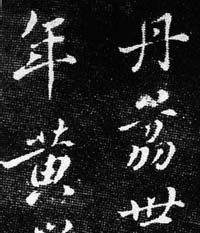 丹荔世
年黄